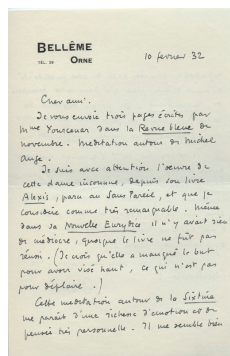 BELLÊME
TÉL. 28 ORNE
10 février 32
Cher ami.
Je vous envoie trois pages écrites par
Mme Yourcenar dans la Revue bleue de
novembre. Méditation autour de Michel
Ange.
Je suis avec attention l'œuvre de
cette dame inconnue, depuis son livre
Alexis, paru au Sans Pareil, et que je
considère comme très remarquable. Même
dans sa Nouvelle Eurydice il n'y avait rien
de médiocre, quoique le livre ne fût pas
réussi. (Je crois qu'elle a manqué le but
pour avoir visé haut, ce qui n'est pas
pour déplaire.)
Cette méditation autour de la Sixtine
me paraît d'une richesse d'émotion et de
pensée très personnelle. Il me semble bien